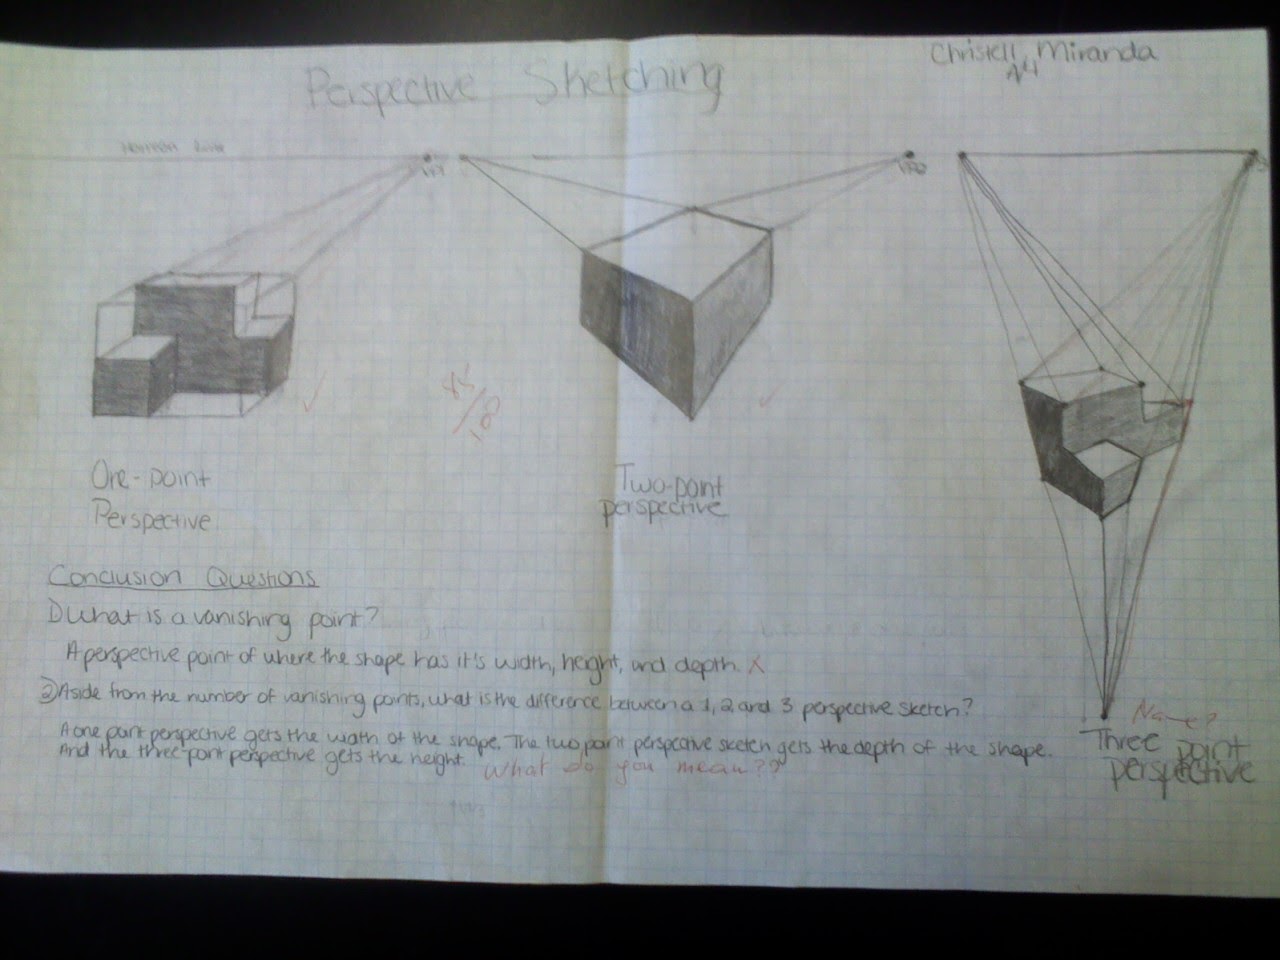 Christell Miranda
Perspective Sketching
Horizon Line
85/100
One-point
Perspective
Two-point
perspective
Conclusion Questions
1) What is a vanishing point?
A perspective point of where the shape has it's width, height, and depth. X
2) Aside from the number of vanishing points, what is the difference between a 1, 2 and 3 perspective sketch?
A one point perspective gets the width of the shape. The two point perspective sketch gets the depth of the shape.
And the three point perspective gets the height. What do you mean??
Name?
Three point
perspective